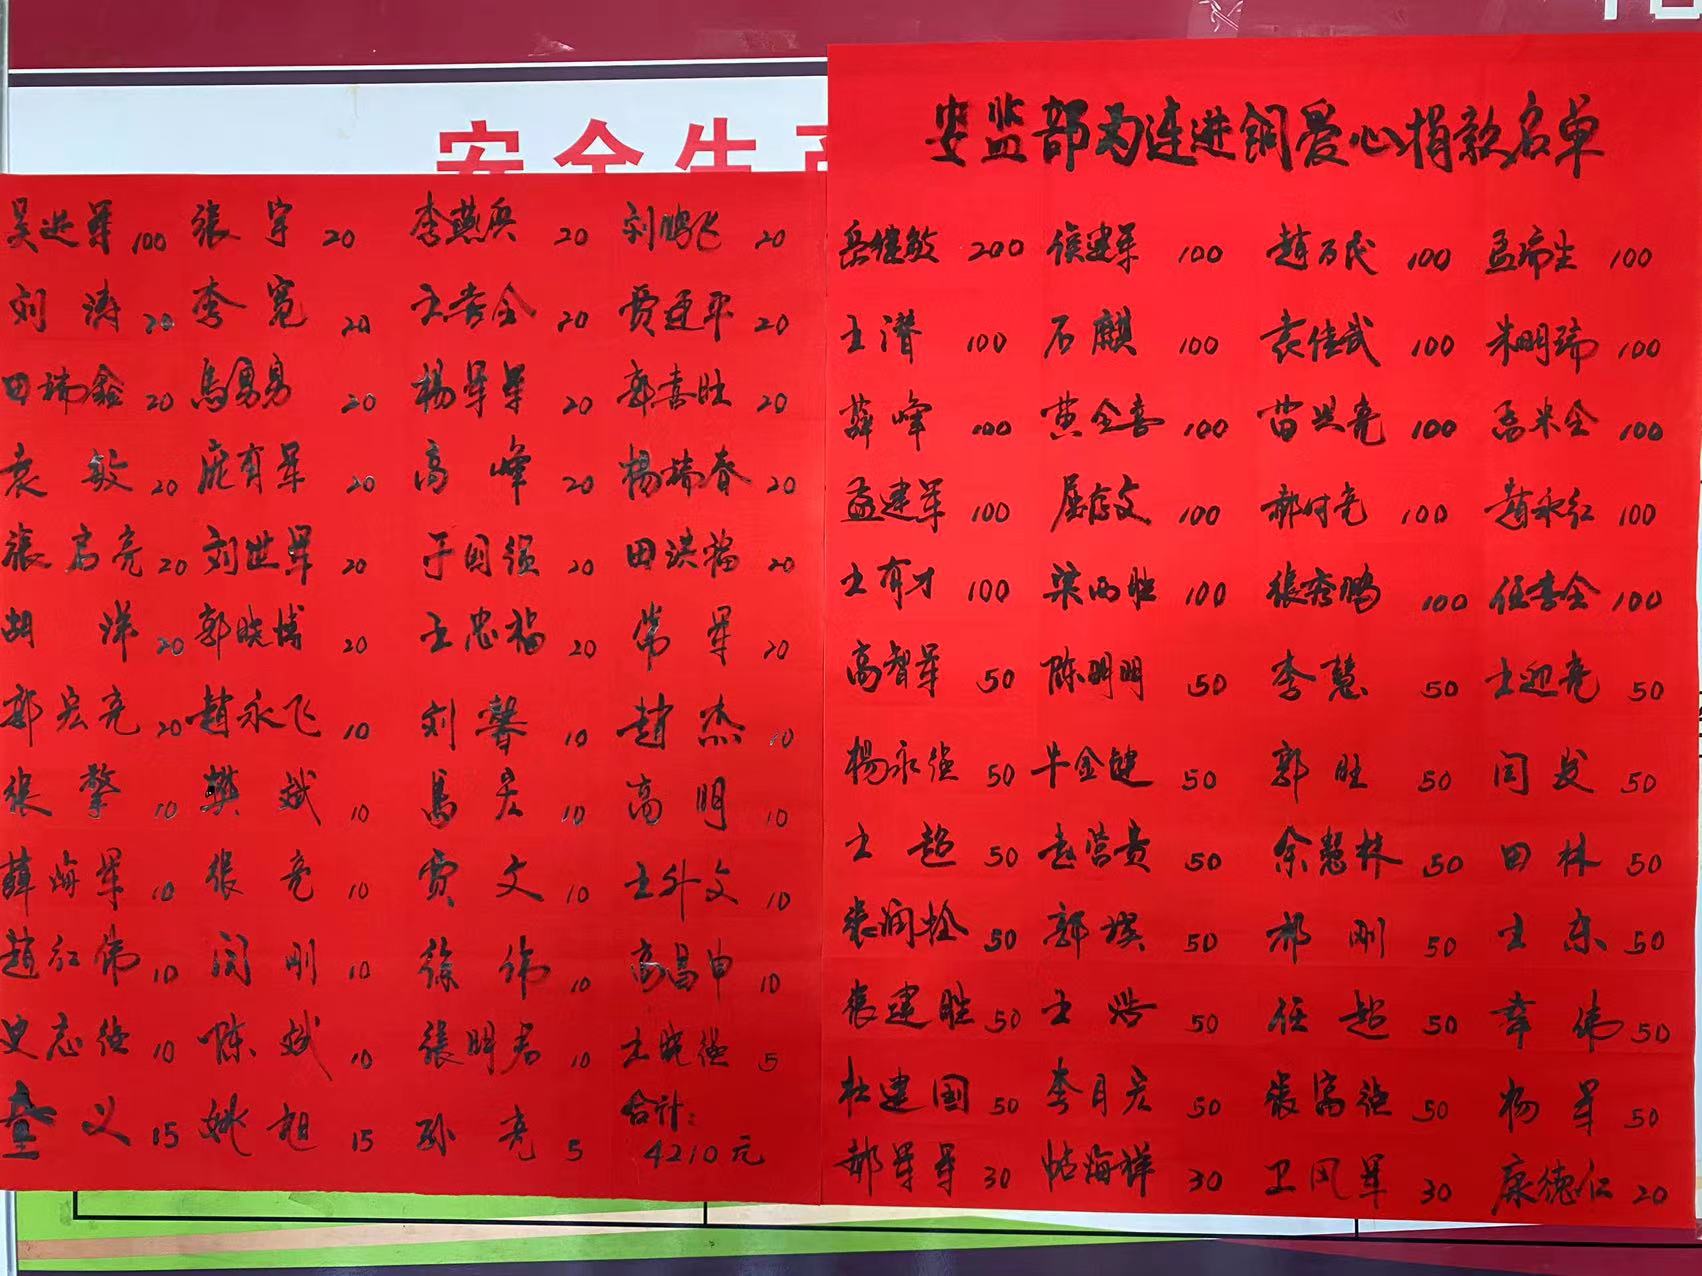 安全生产
安监部为连进钢爱心捐款名单
岳继敏 200 侯建军 100 赵万民 100 孟瑞生 100
王潜 100 石麒 100 袁佳武 100 朱明瑞 100
薛峰 100 黄全喜 100 苗兴亮 100 高米全 100
孟建军 100 屈存文 100 郝付亮 100 赵永红 100
王有才 100 梁丙胜 100 张秀鹏 100 任李全 100
高智军 50 陈明明 50 李慧 50 王迎亮 50
杨永强 50 牛金键 50 郭旺 50 闫发 50
王超 50 赵营贵 50 余慧林 50 田林 50
张润栓 50 郭璞 50 郝刚 50 王东 50
张建胜 50 王浩 50 任超 50 韦伟 50
杜建国 50 李月宏 50 张富强 50 杨军 50
郝军军 30 帖海祥 30 卫风军 30 康德仁 20
吴进军 100 张宇 20 李燕兵 20 刘鹏飞 20
刘涛 20 李宽 20 王孝全 20 贾亚平 20
田瑞鑫 20 马勇勇 20 杨军军 20 郭喜旺 20
袁敏 20 庞有军 20 高峰 20 杨瑞春 20
张启亮 20 刘世军 20 于国强 20 田洪福 20
胡洋 20 郭晓博 20 王忠福 20 常军 20
郭宏亮 20 赵永飞 10 刘馨 10 赵杰 10
张擎 10 樊斌 10 马宏 10 高明 10
薛海军 10 张亮 10 贾文 10 王外文 10
赵红伟 10 闫刚 10 徐伟 10 高昌申 10
史志强 10 陈斌 10 张明君 10 王晓强 5
童义 15 姚旭 15 孙亮 5 合计：
4210元